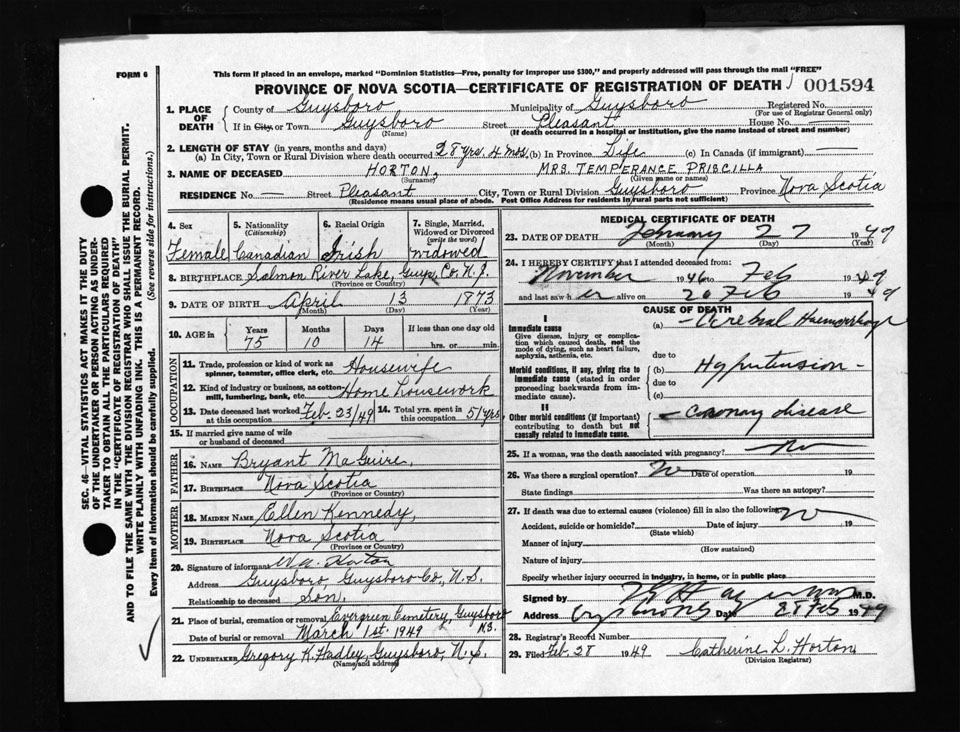 FORM 6
This form if placed in an envelope, marked "Dominion Statistics—Free, penalty for improper use $300," and properly addressed will pass through the mail "FREE"
PROVINCE OF NOVA SCOTIA—CERTIFICATE OF REGISTRATION OF DEATH 001594
1. PLACE OF DEATH County of Guysboro Municipality of Guysboro Registered No.
(For use of Registrar General only)
If in City or Town Guysboro Street Pleasant House No. —
(Name) (If death occurred in a hospital or institution, give the name instead of street and number)
2. LENGTH OF STAY (in years, months and days)
(a) In City, Town or Rural Division where death occurred 28 yrs. 4 mos. (b) In Province Life (c) In Canada (if immigrant) —
3. NAME OF DECEASED HORTON, MRS. TEMPERANCE PRISCILLA
(Surname) (Given name or names)
RESIDENCE No. — Street Pleasant City, Town or Rural Division Guysboro Province Nova Scotia
(Residence means usual place of abode. Post Office Address for residents in rural parts not sufficient)
4. Sex 5. Nationality (Citizenship) 6. Racial Origin 7. Single, Married, Widowed or Divorced (write the word)
Female Canadian Irish widowed
8. BIRTHPLACE Salmon River Lake, Guys. Co. N.S.
(Province or Country)
9. DATE OF BIRTH April 13 1873
(Month) (Day) (Year)
10. AGE in Years Months Days If less than one day old
75 10 14 hrs. or min.
OCCUPATION
11. Trade, profession or kind of work as spinner, teamster, office clerk, etc. Housewife
12. Kind of industry or business, as cotton mill, lumbering, bank, etc. Home housework
13. Date deceased last worked at this occupation Feb. 23/49 14. Total yrs. spent in this occupation 51 yrs.
15. If married give name of wife or husband of deceased
FATHER
16. NAME Bryant MaGuire,
17. BIRTHPLACE Nova Scotia
(Province or Country)
MOTHER
18. MAIDEN NAME Ellen Kennedy,
19. BIRTHPLACE Nova Scotia
(Province or Country)
20. Signature of informant Horton
Address Guysboro, Guysboro Co., N.S.
Relationship to deceased son.
21. Place of burial, cremation or removal Evergreen Cemetery, Guysboro N.S.
Date of burial or removal March 1st. 1949
22. UNDERTAKER Gregory K. Hadley, Guysboro, N.S.
(Name and address)
MEDICAL CERTIFICATE OF DEATH
23. DATE OF DEATH February 27 1949
(Month) (Day) (Year)
24. I HEREBY CERTIFY that I attended deceased from:
November 1946 to Feb 1949
and last saw her alive on 26 Feb 1949
CAUSE OF DEATH
I
Immediate cause
Give disease, injury or complication which caused death, not the mode of dying, such as heart failure, asphyxia, asthenia, etc.
(a) Cerebral Haemorrhage
due to
Morbid conditions, if any, giving rise to immediate cause (stated in order proceeding backwards from immediate cause).
(b) Hypertension —
due to
(c)
II
Other morbid conditions (if important) contributing to death but not causally related to immediate cause.
Coronary disease
25. If a woman, was the death associated with pregnancy? No
26. Was there a surgical operation? No Date of operation 19
State findings Was there an autopsy?
27. If death was due to external causes (violence) fill in also the following: No
Accident, suicide or homicide? Date of injury 19
(State which)
Manner of injury
(How sustained)
Nature of injury
Specify whether injury occurred in industry, in home, or in public place
Signed by M.D.
Address Date 28 Feb 1949
28. Registrar's Record Number
29. Filed Feb. 28 1949 Catherine L. Horton
(Division Registrar)
SEC. 46—VITAL STATISTICS ACT MAKES IT THE DUTY
OF THE UNDERTAKER OR PERSON ACTING AS UNDER-
TAKER TO OBTAIN ALL THE PARTICULARS REQUIRED
IN THE "CERTIFICATE OF REGISTRATION OF DEATH"
AND TO FILE THE SAME WITH THE DIVISION REGISTRAR WHO SHALL ISSUE THE BURIAL PERMIT.
WRITE PLAINLY WITH UNFADING INK. THIS IS A PERMANENT RECORD.
Every item of information should be carefully supplied. (See reverse side for instructions.)